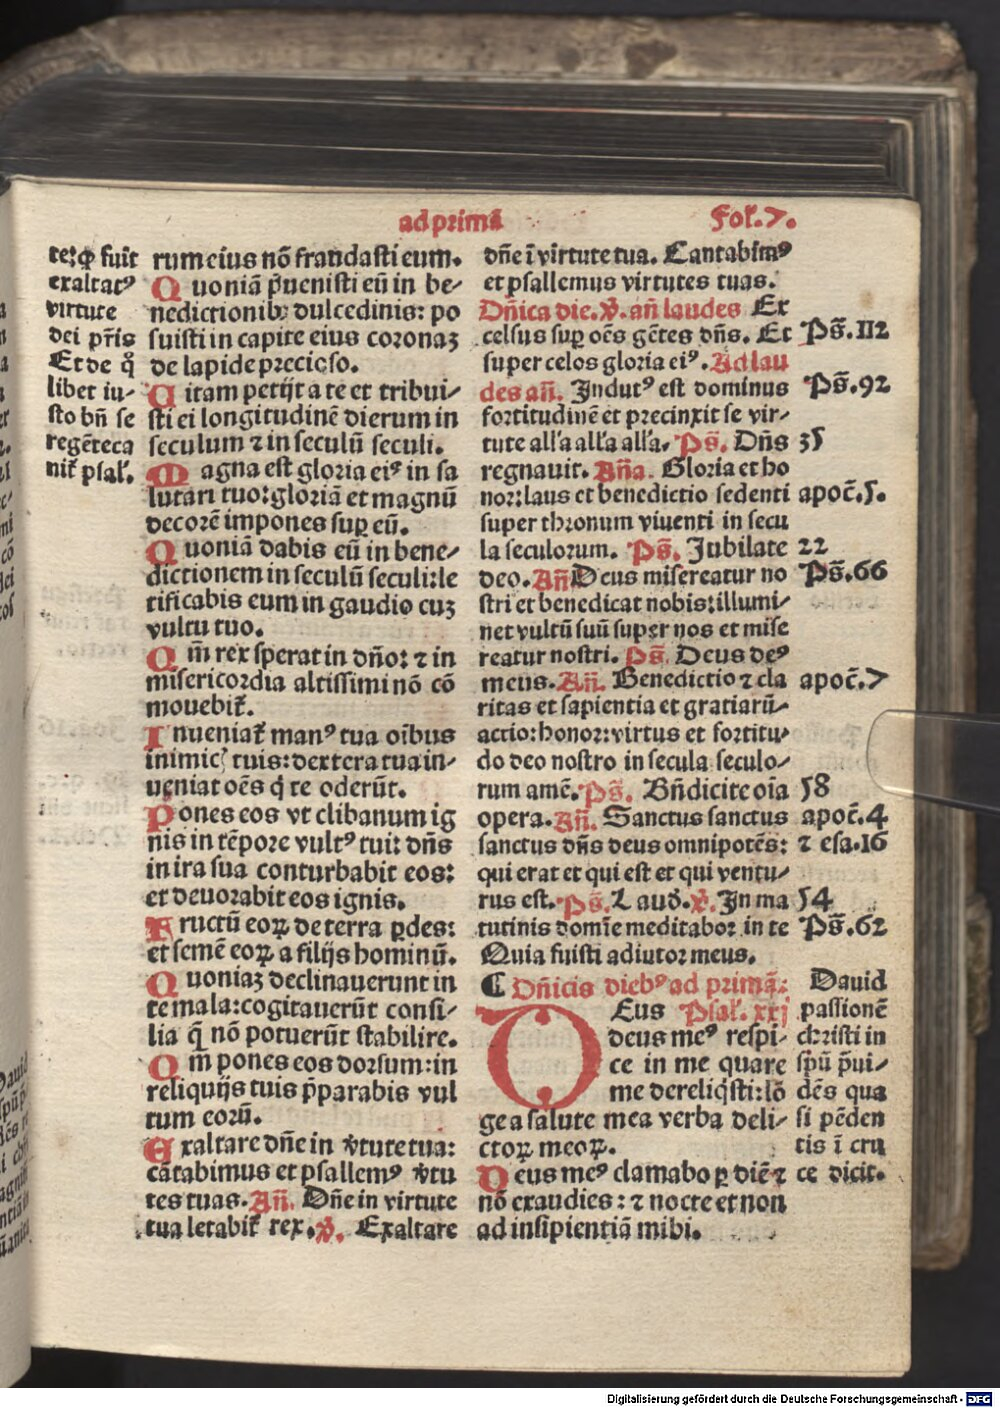 ad primā
Fol̄.7.
te: ꝙ fuit
exaltatꝰ
virtute
dei p̄ris
Et de q̊
libet iu-
sto bn̄ se
regēteca
nit̄ psal̄.
rum eius nō fraudasti eum.
Quoniā p̄uenisti eū in be-
nedictionibꝫ dulcedinis: po
suisti in capite eius coronaꝫ
de lapide precioso.
Uitam petijt a te et tribui-
sti ei longitudinē dierum in
seculum ⁊ in seculū seculi.
Magna est gloria eiꝰ in sa
lutari tuo: gloriā et magnū
decorē impones suꝑ eū.
Quoniā dabis eū in bene-
dictionem in seculū seculi: le
tificabis eum in gaudio cuꝫ
vultu tuo.
Qm̄ rex sperat in dño: ⁊ in
misericordia altissimi nō cō
mouebit̄.
Inueniat̄ manꝰ tua oībus
inimic̄ tuis: dextera tua in-
ueniat oēs q̇ te oderūt.
Pones eos vt clibanum ig
nis in tēpore vultꝰ tui: dn̄s
in ira sua conturbabit eos:
et deuorabit eos ignis.
Fructū eoꝝ de terra ꝑdes:
et semē eoꝝ a filijs hominū.
Quoniaꝫ declinauerunt in
te mala: cogitauerūt consi-
lia q̄ nō potuerūt stabilire.
Qm̄ pones eos dorsum: in
reliquijs tuis p̄parabis vul
tum eorū.
Exaltare dn̄e in v̄tute tua:
cātabimus et psallemꝰ v̄tu
tes tuas. Añ. Dn̄e in virtute
tua letabit̄ rex. ꝟ. Exaltare
dn̄e ī virtute tua. Cantabimꝰ
et psallemus virtutes tuas.
Dn̄ica die. ꝟ. añ laudes Ex
celsus suꝑ oēs gētes dn̄s. Et
super celos gloria eiꝰ. Ad lau
des añ. Indutꝰ est dominus
fortitudinē et precinxit se vir-
tute all'a all'a all'a. Ps̄. Dn̄s
regnauit. Añа. Gloria et ho
nor: laus et benedictio sedenti
super thronum viuenti in secu
la seculorum. Ps̄. Jubilate
deo. Añ Deus misereatur no
stri et benedicat nobis: illumi-
net vultū suū super nos et mise
reatur nostri. Ps̄. Deus deꝰ
meus. Añ. Benedictio ⁊ cla
ritas et sapientia et gratiarū-
actio: honor: virtus et fortitu-
do deo nostro in secula seculo-
rum amē. Ps̄. Bn̄dicite oīa
opera. Añ. Sanctus sanctus
sanctus dn̄s deus omnipotēs:
qui erat et qui est et qui ventu-
rus est. Ps̄. Laud̄. ꝟ. In ma
tutinis domīe meditabor in te
Quia fuisti adiutor meus.
¶ Dn̄icis diebꝰ ad primā:
Deus Psal̄. xxj
deus meꝰ respi-
ce in me quare
me dereliq̇sti: lō
ge a salute mea verba deli-
ctoꝝ meoꝝ.
Deus meꝰ clamabo ꝑ diē ⁊
nō exaudies: ⁊ nocte et non
ad insipientiā mihi.
Ps̄.112
Ps̄.92
35
apoc̄.5.
22
Ps̄.66
apoc̄.7
58
apoc̄.4
⁊ esa.16
54
Ps̄.62
Dauid
passionē
christi in
sp̄u p̄ui-
dēs qua
si pēden
tis ī cru
ce dicit.
Digitalisierung gefördert durch die Deutsche Forschungsgemeinschaft - DFG